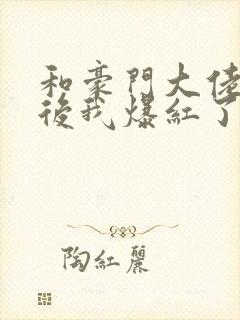 和豪門大佬
後我爆紅了
陶紅麗